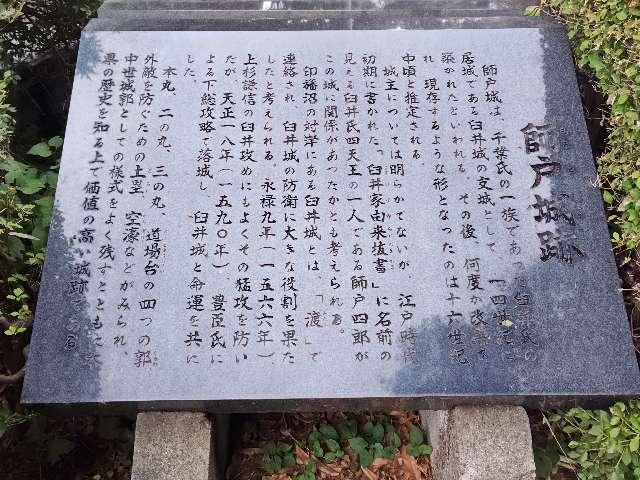 師戸城跡
師戸城は、千葉氏の一族である臼井氏の
居城である臼井城の支城として、一四世紀に
築かれたといわれる。その後、何度か改築さ
れ、現存するような形となったのは十六世紀
中頃と推定される。
城主については明らかでないが、江戸時代
初期に書かれた「臼井家由来抜書」に名前の
見える臼井氏四天王の一人である師戸四郎が
この城に関係があったかとも考えられる。
印旛沼の対岸にある臼井城とは、「渡」で
連絡され、臼井城の防衛に大きな役割を果た
したと考えられる。永禄九年(一五六六年)、
上杉謙信の臼井攻めにもよくその猛攻を防い
だが、天正一八年(一五九〇年)、豊臣氏に
よる下総攻略で落城し、臼井城と命運を共に
した。
本丸、二の丸、三の丸、道場台の四つの郭
外敵を防ぐための土塁、空濠などがみられ、
中世城郭としての様式をよく残すとともに
県の歴史を知る上で価値の高い城跡である